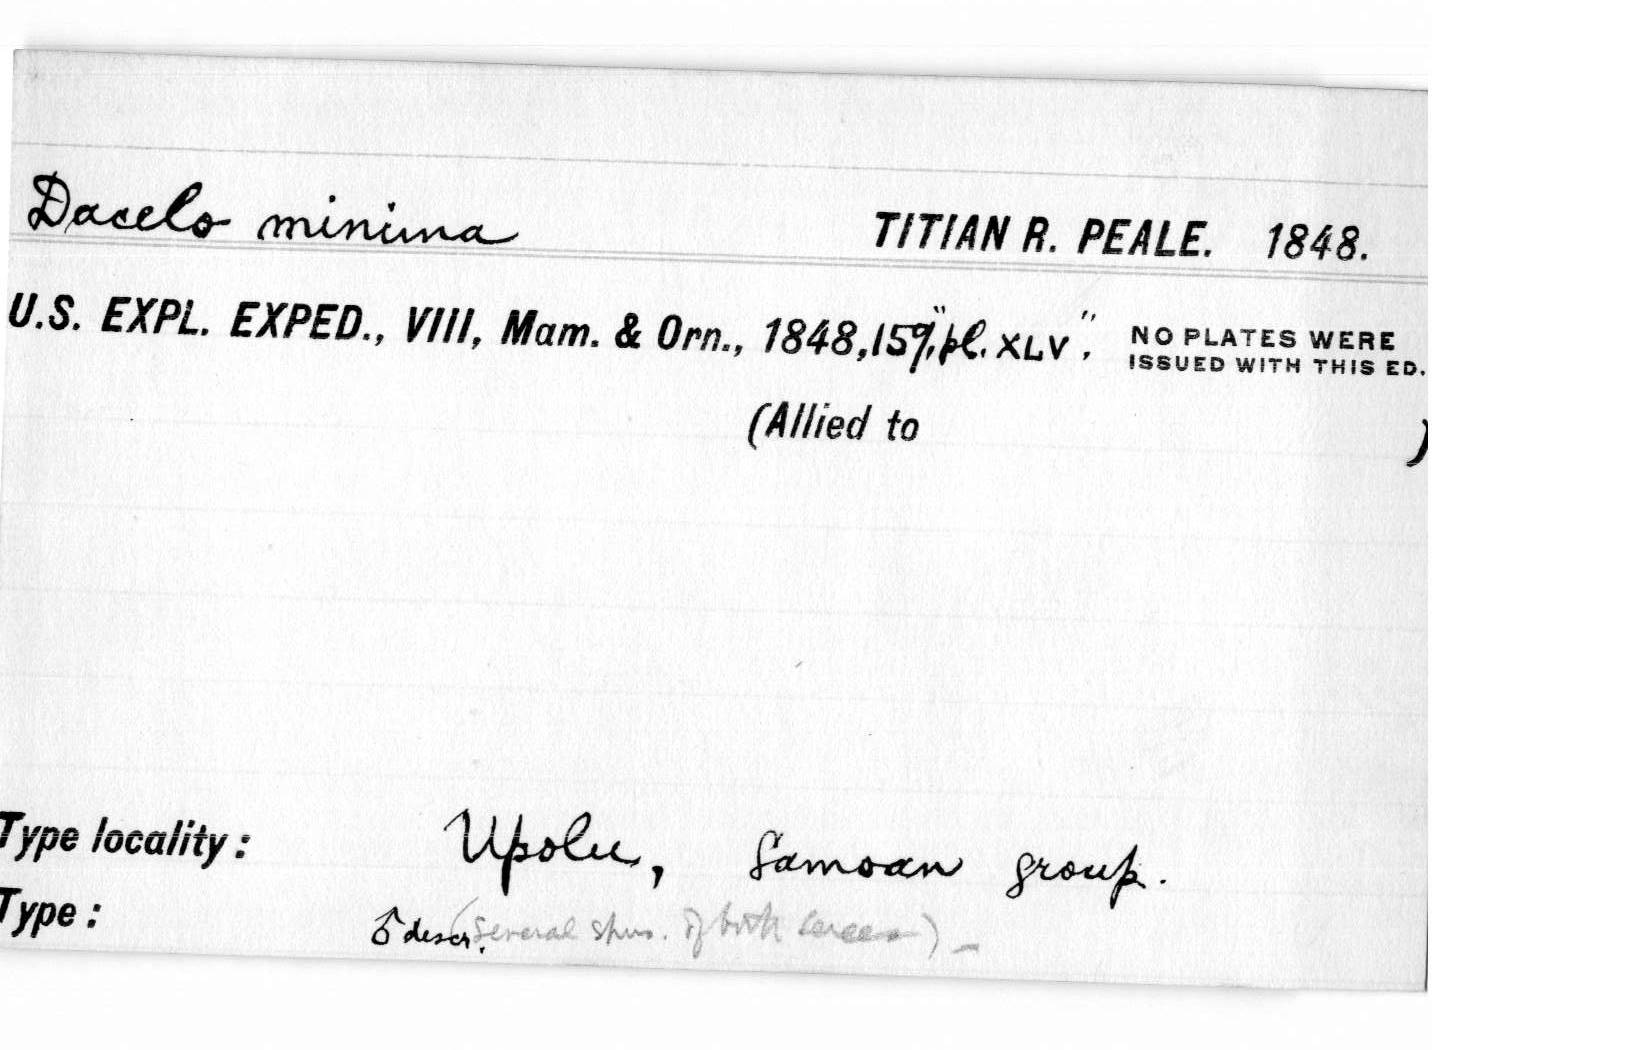 Dacelo minima TITIAN R. PEALE. 1848.
U.S. EXPL. EXPED., VIII, Mam. & Orn., 1848, 159, "pl. XLV". NO PLATES WERE
ISSUED WITH THIS ED.
(Allied to )
Type locality: Upolu, Samoan group.
Type: ♂ descr. (several spms. of both sexes) –